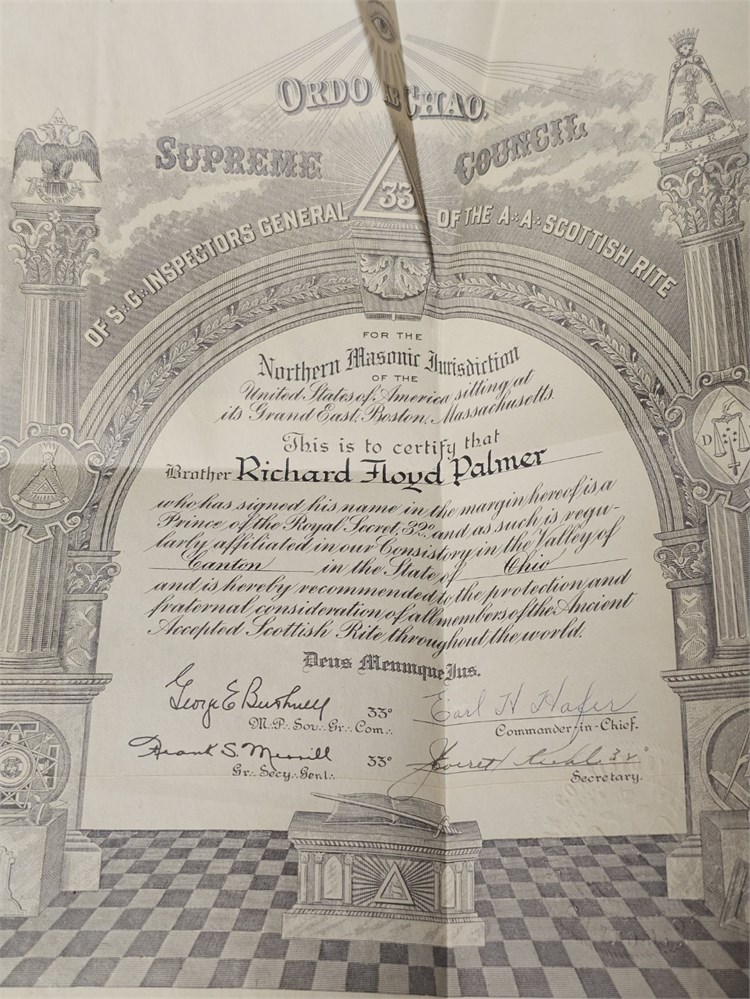 ORDO AB CHAO.
SUPREME COUNCIL
33
OF S∴G∴INSPECTORS GENERAL OF THE A∴A∴SCOTTISH RITE
FOR THE
Northern Masonic Jurisdiction
OF THE
United States of America sitting at
its Grand East, Boston, Massachusetts.
This is to certify that
Brother Richard Floyd Palmer
who has signed his name in the margin hereof is a
Prince of the Royal Secret, 32° and as such is regu-
larly affiliated in our Consistory in the Valley of
Canton in the State of Ohio
and is hereby recommended to the protection and
fraternal consideration of all members of the Ancient
Accepted Scottish Rite throughout the world.
Deus Meumque Jus.
George E Bushnell 33°
M∴P∴Sov∴Gr∴Com∴
Earl H Hafer
Commander-in-Chief.
Frank S. Merrill 33°
Gr∴Secy∴Genl∴
Everett 32°
Secretary.
D